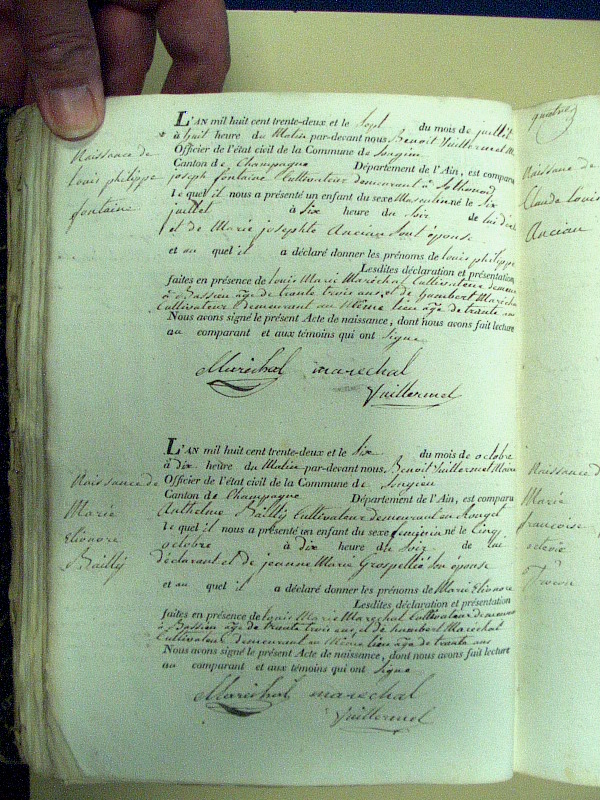 Naissance de
louis philippe
fontaine
L'AN mil huit cent trente-deux et le Sept du mois de juillet
à huit heure du Matin par-devant nous Benoit Vuillermet M
Officier de l'état civil de la Commune de Songieu
Canton de Champagne Département de l'Ain, est comparu
joseph fontaine Cultivateur demeurant à Sothonod
Lequel il nous a présenté un enfant du sexe Masculin né le Six
juillet à Six heure du Soir de lui décl
et de Marie josephte Ancian Son épouse
et au quel il a déclaré donner les prénoms de louis philippe
Lesdites déclaration et présentation
faites en présence de louis Marie Maréchal Cultivateur demeura
à Bassieu âgé de trante trois ans, et de hambert Maréchal
Cultivateur demeurant au Même lieu âgé de trante ans
Nous avons signé le présent Acte de naissance, dont nous avons fait lecture
au comparant et aux témoins qui ont Signé
Maréchal marechal
Vuillermet
Naissance de
Marie
Eliônore
Bailly
L'AN mil huit cent trente-deux et le Six du mois de octobre
à dix heure du Matin par-devant nous Benoit Vuillermet Maire
Officier de l'état civil de la Commune de Songieu
Canton de Champagne Département de l'Ain, est comparu
Anthelme Bailly Cultivateur demeurant en
Lequel il nous a présenté un enfant du sexe feminin né le Cinq
octobre à dix heure du Soir de lui
déclarant et de jeanne Marie Grospellié Son épouse
et au quel il a déclaré donner les prénoms de Marie Eliônore
Lesdites déclaration et présentation
faites en présence de louis Marie Marechal Cultivateur demeurant
à Bassieu âgé de trante trois ans, et de hambert Maréchal
Cultivateur demeurant au Même lieu âgé de trante ans
Nous avons signé le présent Acte de naissance, dont nous avons fait lecture
au comparant et aux témoins qui ont Signé
Maréchal marechal
Vuillermet
Naissance de
Claude Louis
Ancian
Naissance d
Marie
francoise
octavie